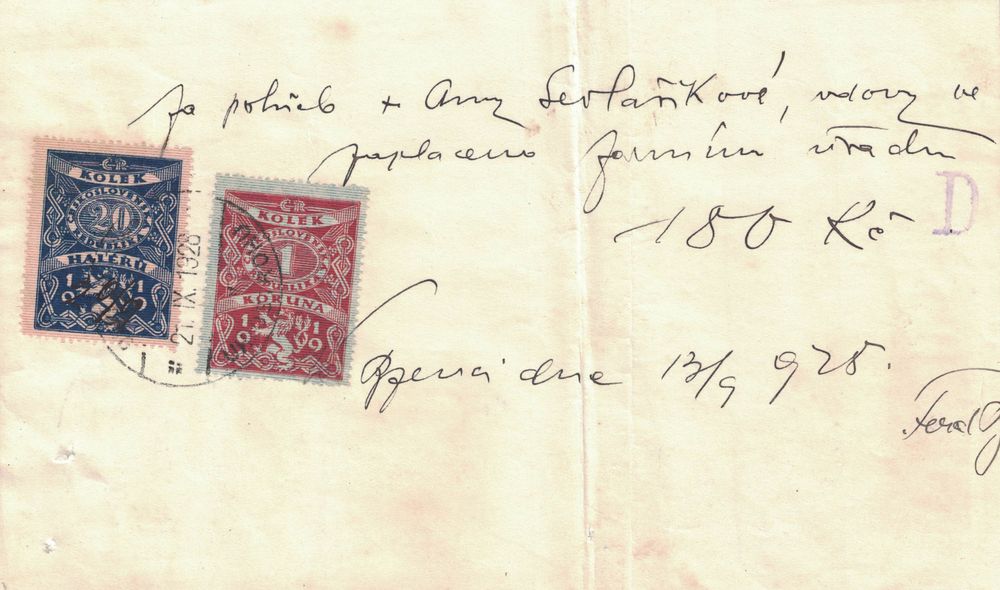 Za pohřeb + Anny Sedlaříkové, vdovy ve
zaplaceno farním úřadu
180 Kč
D
dne 13/9 925.
Ferd
ČR
KOLEK
ČESKOSLOVENSKÁ
20
REPUBLIKA
HALÉŘŮ
1919
21. IX. 1928
ČR
KOLEK
ČESKOSLOVENSKÁ
1
REPUBLIKA
KORUNA
1919